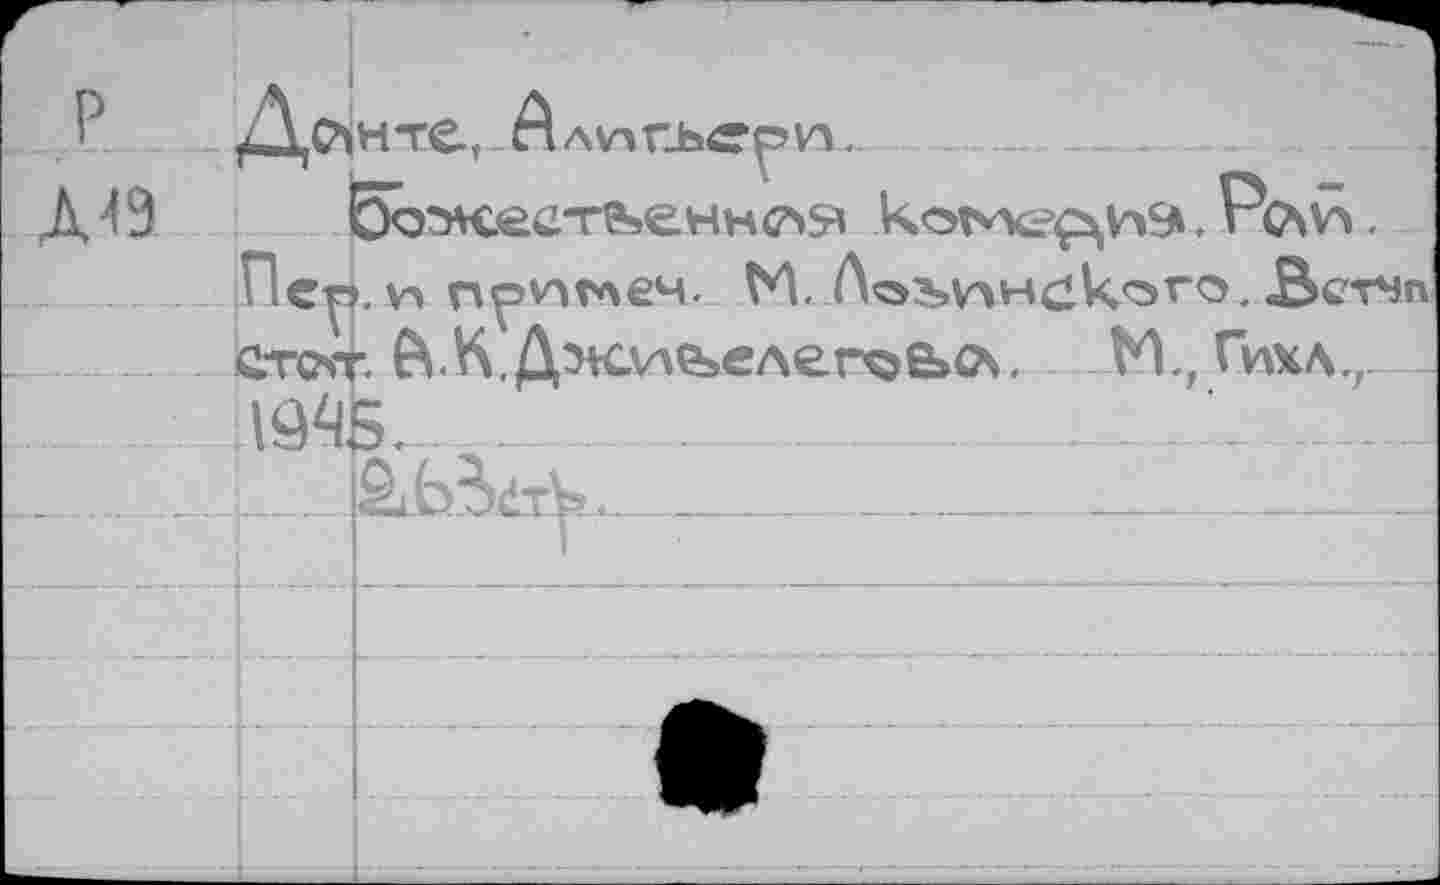 Р Данте, Алигьери.
Д19 Божественная комедия. Рай.
Пер. и примеч. М. Лозинского. Вступ
стат. А.К. Дживелегова. М., Гихл.,
1945.